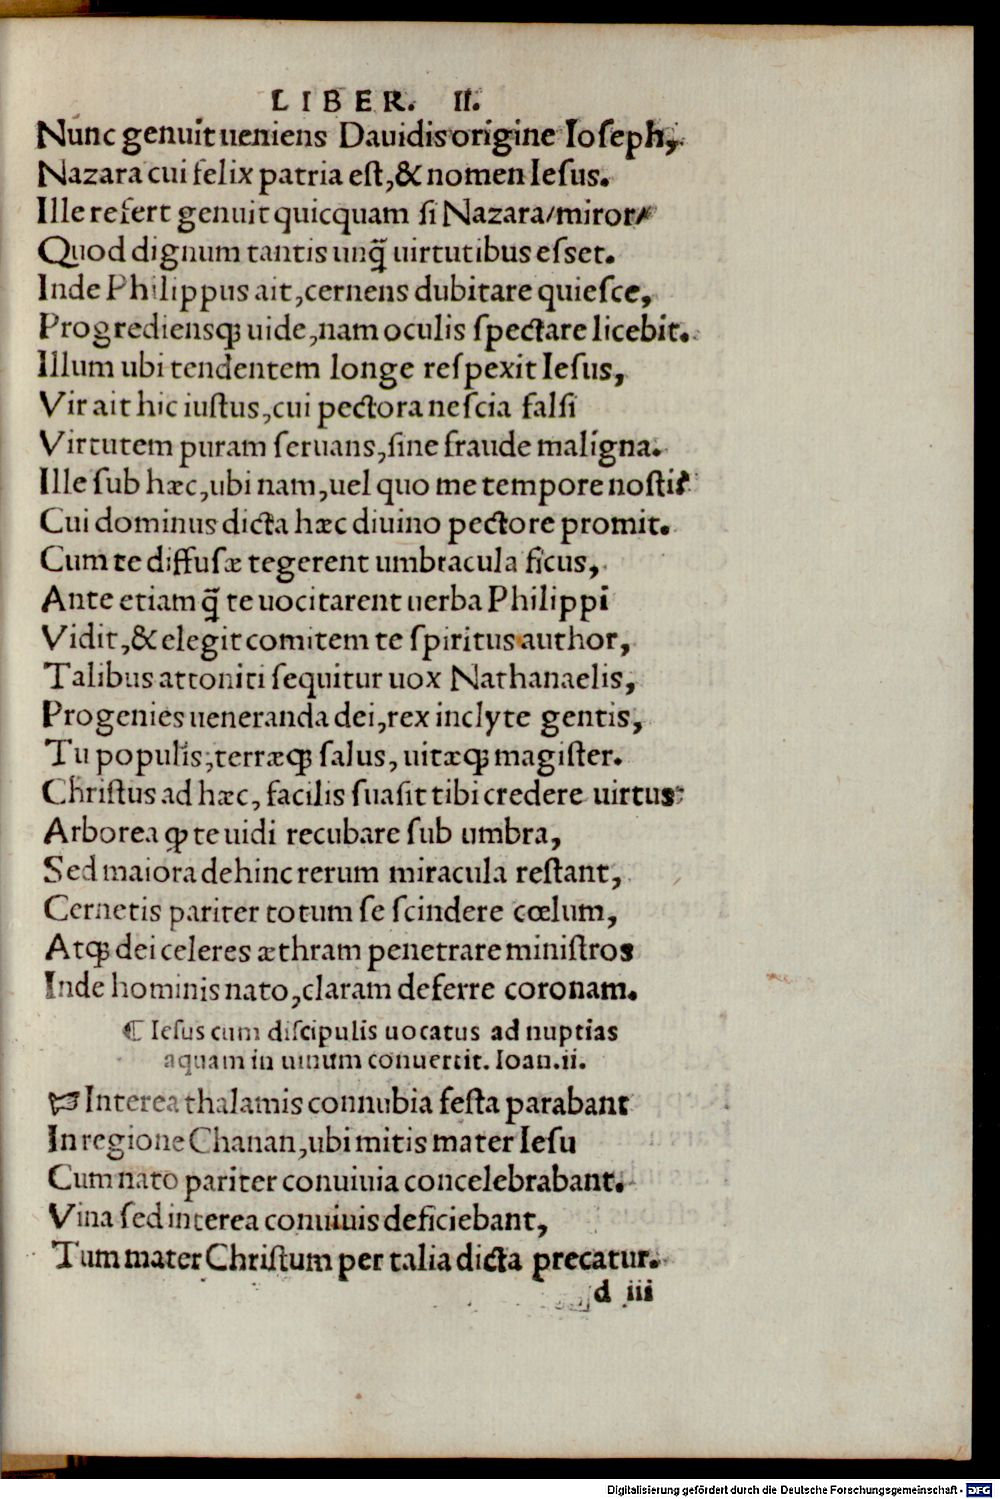 LIBER. II.
Nunc genuit ueniens Dauidis origine Ioseph,
Nazara cui felix patria est,& nomen Iesus.
Ille refert genuit quicquam si Nazara/miror/
Quod dignum tantis unq̃ uirtutibus esset.
Inde Philippus ait,cernens dubitare quiesce,
Progrediensqꝫ uide,nam oculis spectare licebit.
Illum ubi tendentem longe respexit Iesus,
Vir ait hic iustus,cui pectora nescia falsi
Virtutem puram seruans,sine fraude maligna.
Ille sub hæc,ubi nam,uel quo me tempore nostis?
Cui dominus dicta hæc diuino pectore promit.
Cum te diffusæ tegerent umbracula ficus,
Ante etiam q̃ te uocitarent uerba Philippi
Vidit,& elegit comitem te spiritus author,
Talibus attoniti sequitur uox Nathanaelis,
Progenies ueneranda dei,rex inclyte gentis,
Tu populis,terræqꝫ salus, uitæqꝫ magister.
Christus ad hæc, facilis suasit tibi credere uirtus
Arborea ꝙ te uidi recubare sub umbra,
Sed maiora dehinc rerum miracula restant,
Cernetis pariter totum se scindere cœlum,
Atqꝫ dei celeres æthram penetrare ministros
Inde hominis nato,claram deferre coronam.
¶ Iesus cum discipulis uocatus ad nuptias
aquam in uinum conuertit. Ioan.ii.
☞ Interea thalamis connubia festa parabant
In regione Chanan,ubi mitis mater Iesu
Cum nato pariter conuiuia concelebrabant.
Vina sed interea conuiuis deficiebant,
Tum mater Christum per talia dicta precatur.
d iii
Digitalisierung gefördert durch die Deutsche Forschungsgemeinschaft - DFG